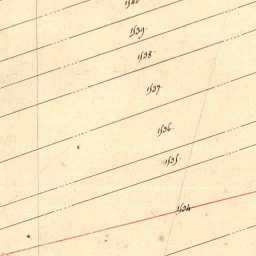 1539
1538
1537
1536
1535
1534